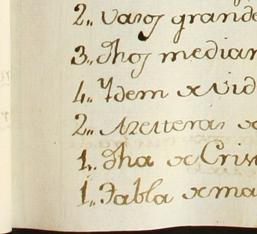 2,, Vasos grande
3,, Dhos median
4,, Ydem de Vid
2,, Azeiteras de
1,, Dha de Cris
1,, Tabla de ma